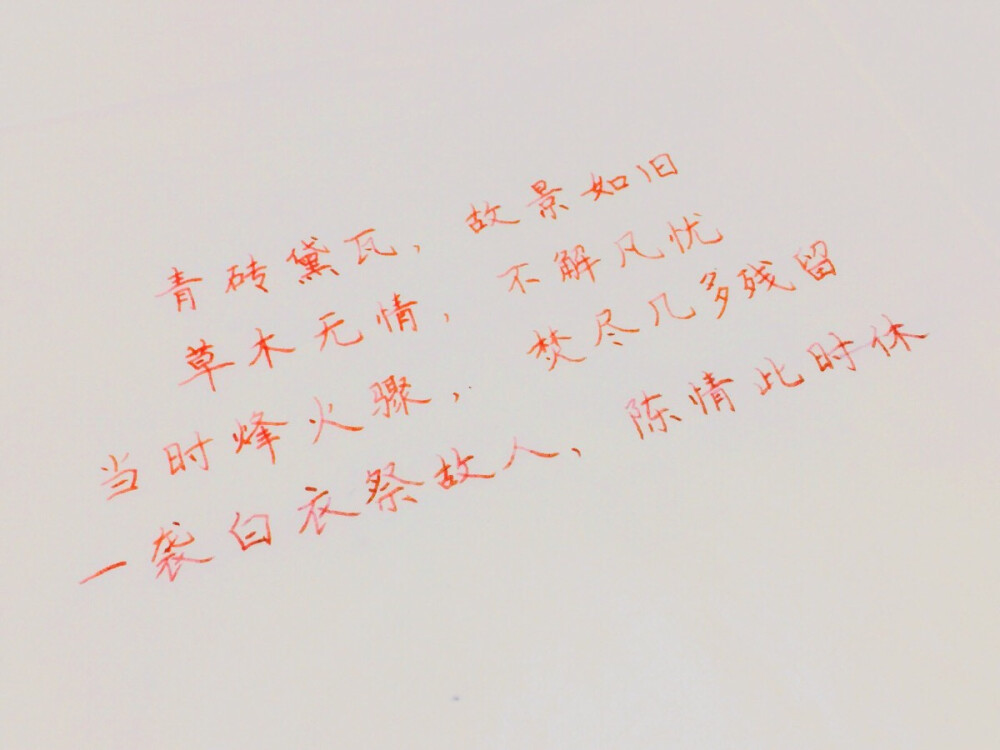 青砖黛瓦,故景如旧
草木无情,不解凡忧
当时烽火骤,焚尽几多残留
一袭白衣祭故人、陈情此时休